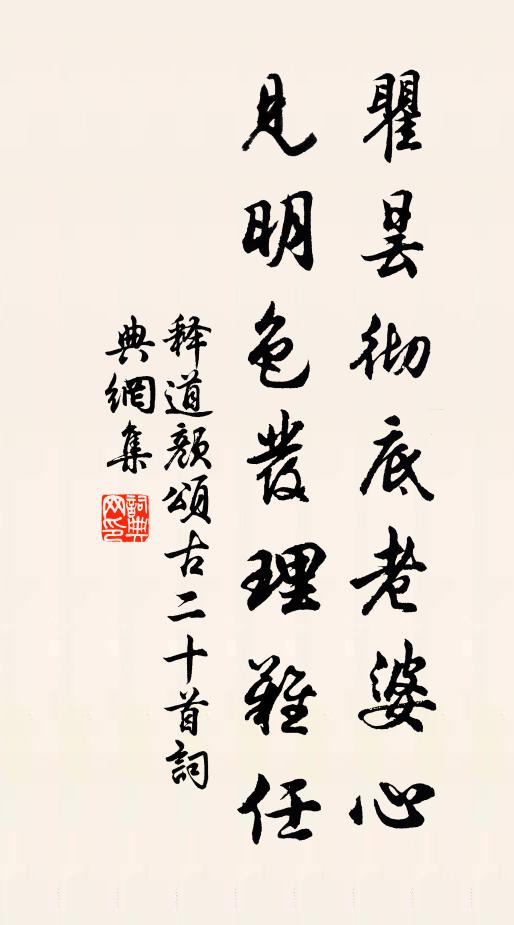 瞿昙彻底老婆心
見明色發理難任
释道颜頌古二十首詞
典網集
詞典網印